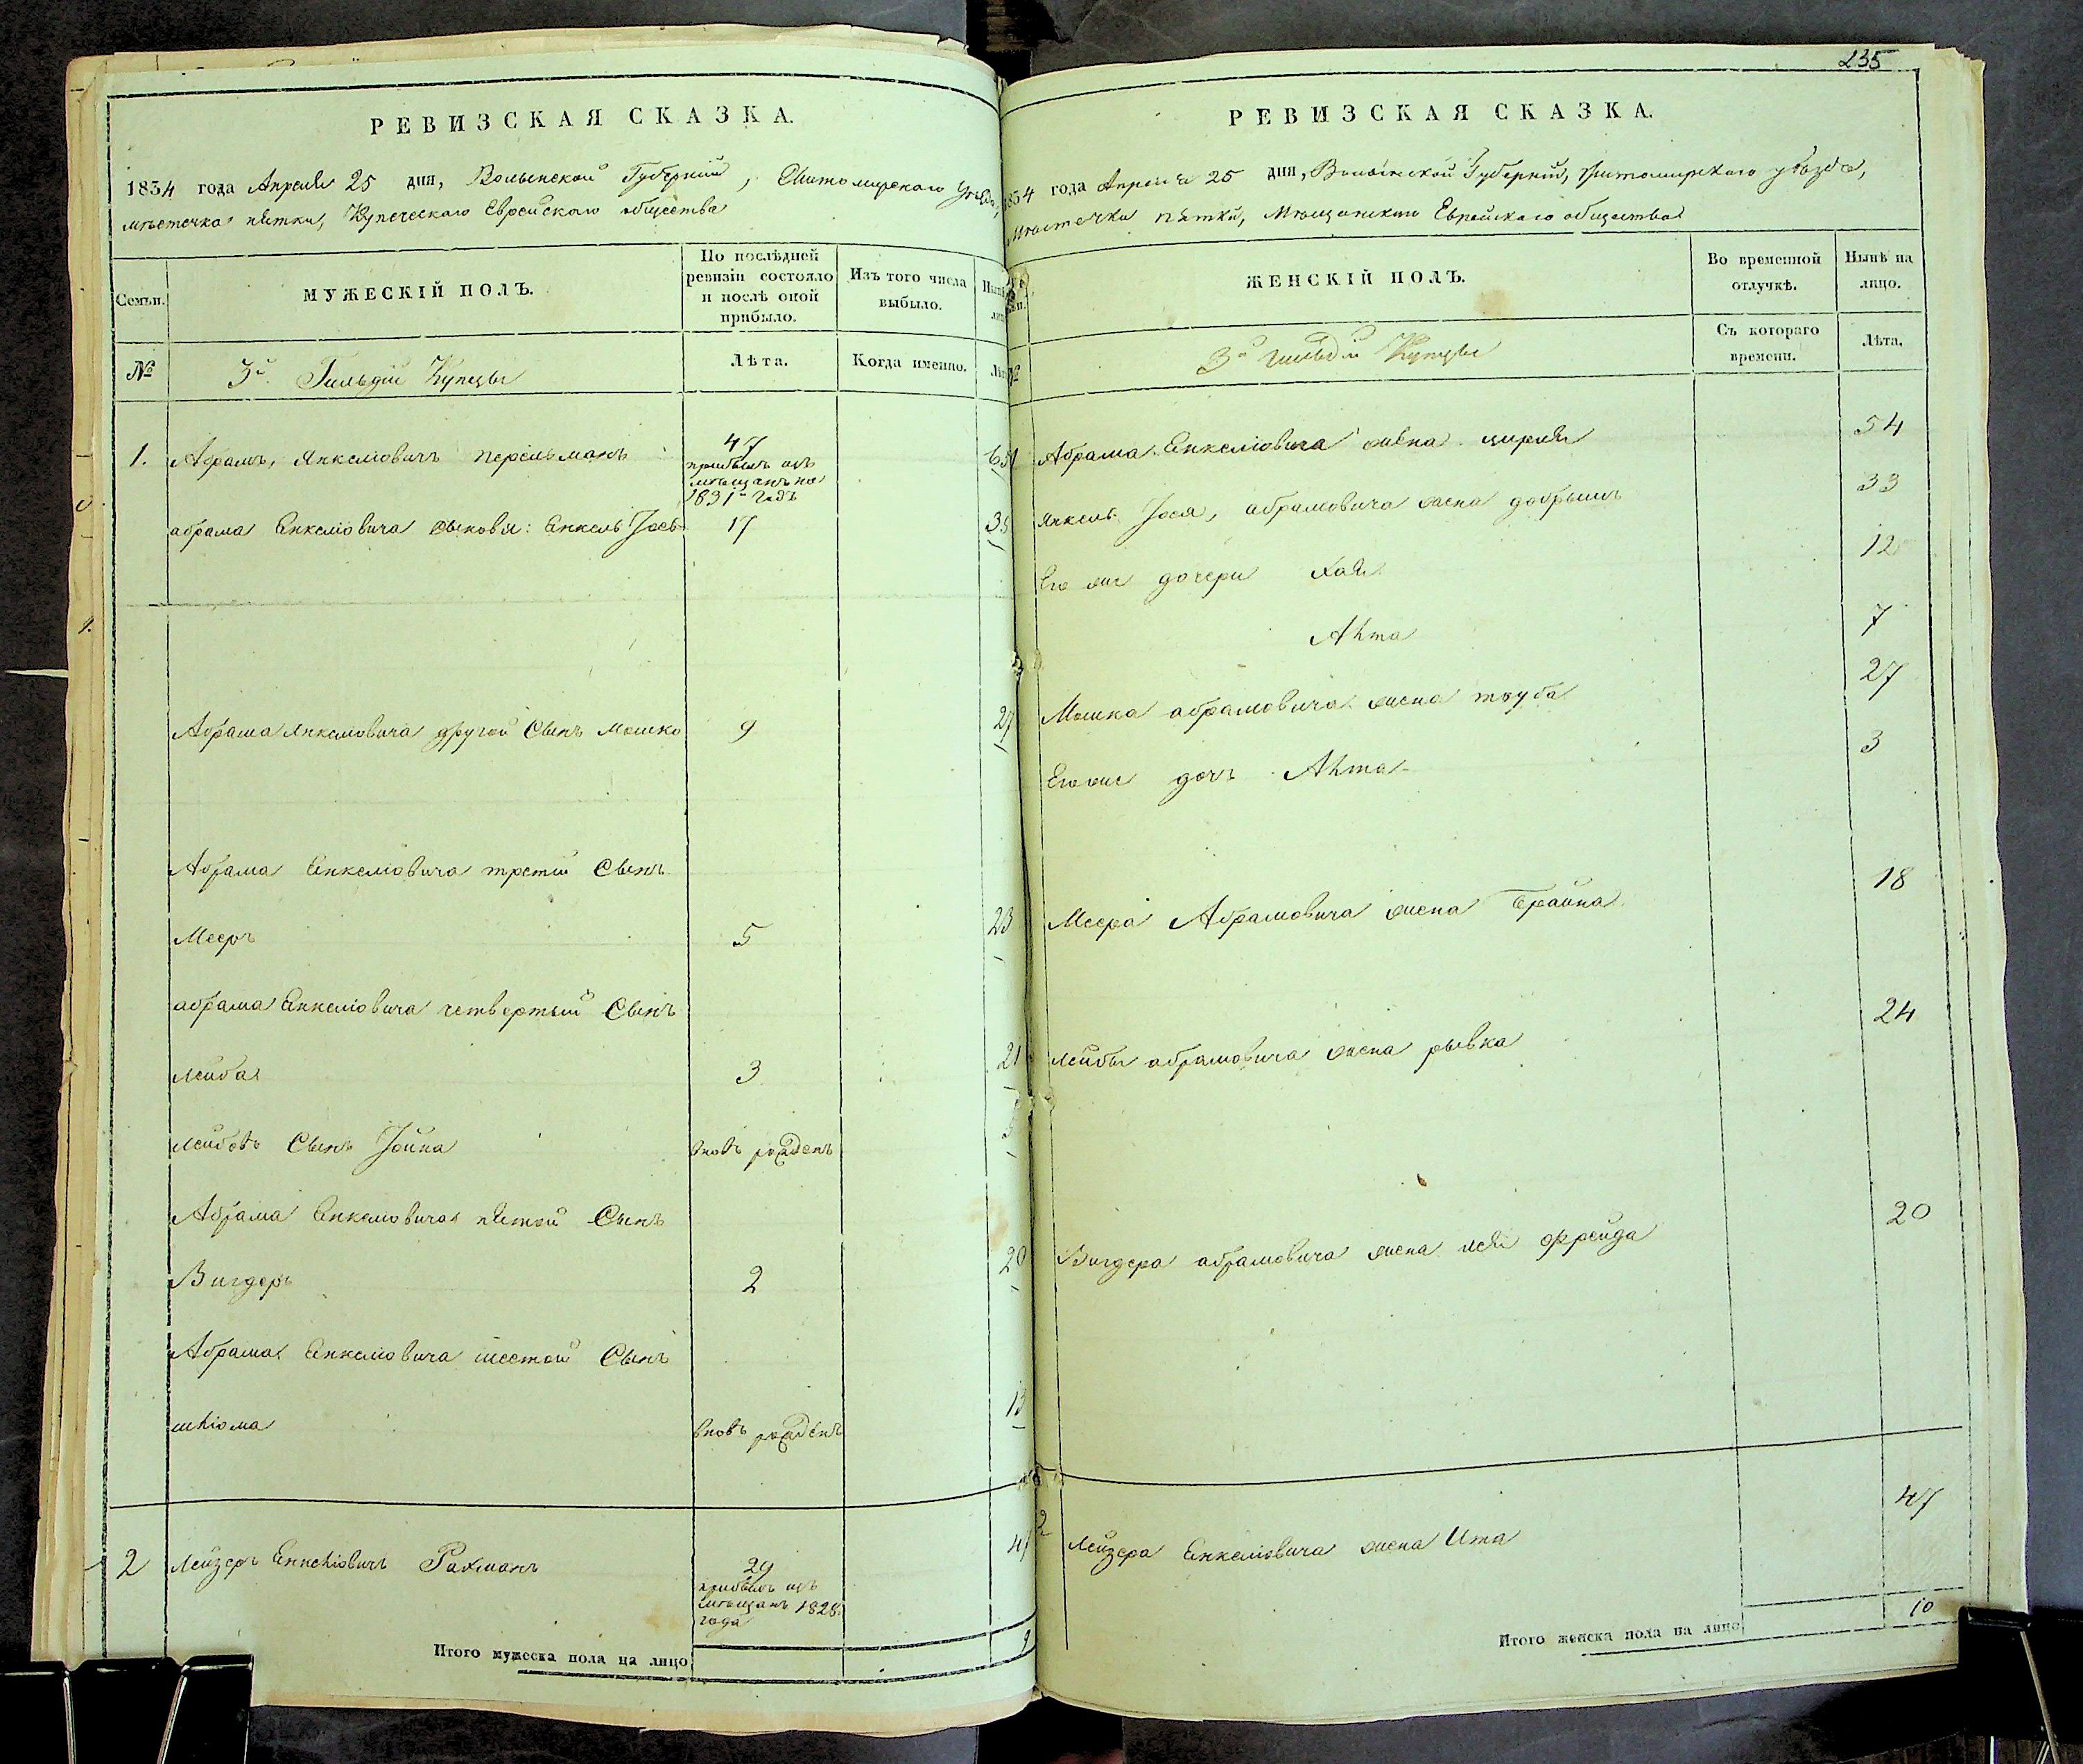 РЕВИЗСКАЯ СКАЗКА.
1834 года Апреля 25 дня, Волынской Губерніи, Житомирскаго Уѣзда,
мѣстечка пятки, Купеческаго Еврейскаго общества
Семьи.
МУЖЕСКІЙ ПОЛЪ.
По послѣдней
ревизіи состояло
и послѣ оной
прибыло.
Изъ того числа
выбыло.
№
3й Гильдіи Купцы
Лѣта.
Когда именно.
1. Абрамъ, Янкеліовичъ перельманъ 47
прибылъ изъ
мѣщанъ на
1831й годъ
абрама Енкеліовича сыновья: Енкель Іось 17 35
Абрама Янкеліовича другой Сынъ мошко 9 27
Абрама Енкеліовича третій Сынъ
Мееръ 5 23
абрама Енкеліовича четвертый Сынъ
лейба 3 21
лейбовъ Сынъ Іойна вновь рожденъ
Абрама Енкеліовича пятой Сынъ
Вигдоръ 2 20
Абрама Енкеліовича шестой Сынъ
шліома вновь рожденъ 13
2 лейзеръ Енкеліовичъ Рахманъ 29 47
прибылъ изъ
мѣщанъ 1828
года
Итого мужеска пола на лицо 9
235
РЕВИЗСКАЯ СКАЗКА.
1834 года Апреля 25 дня, Волынской Губерніи, Житомирскаго уѣзда,
Мѣстечка пятки, Мѣщанскаго Еврейскаго общества
ЖЕНСКІЙ ПОЛЪ.
Во временной
отлучкѣ.
Нынѣ на
лицо.
№
3й гильдіи Купцы
Съ котораго
времени.
Лѣта.
Абрама Енкеліовича жена цирля 54
янкель Іося, абрамовича жена добрышъ 33
Его же дочери хая 12
Аита 7
Мошка абрамовича жена тауба 27
Его же дочь Аита 3
Меера Абрамовича жена Брайна 18
лейбы абрамовича жена рывка 24
Вигдора абрамовича жена лея фрейда 20
2 лейзера Енкеліовича жена Ита 47
Итого женска пола на лицо 10